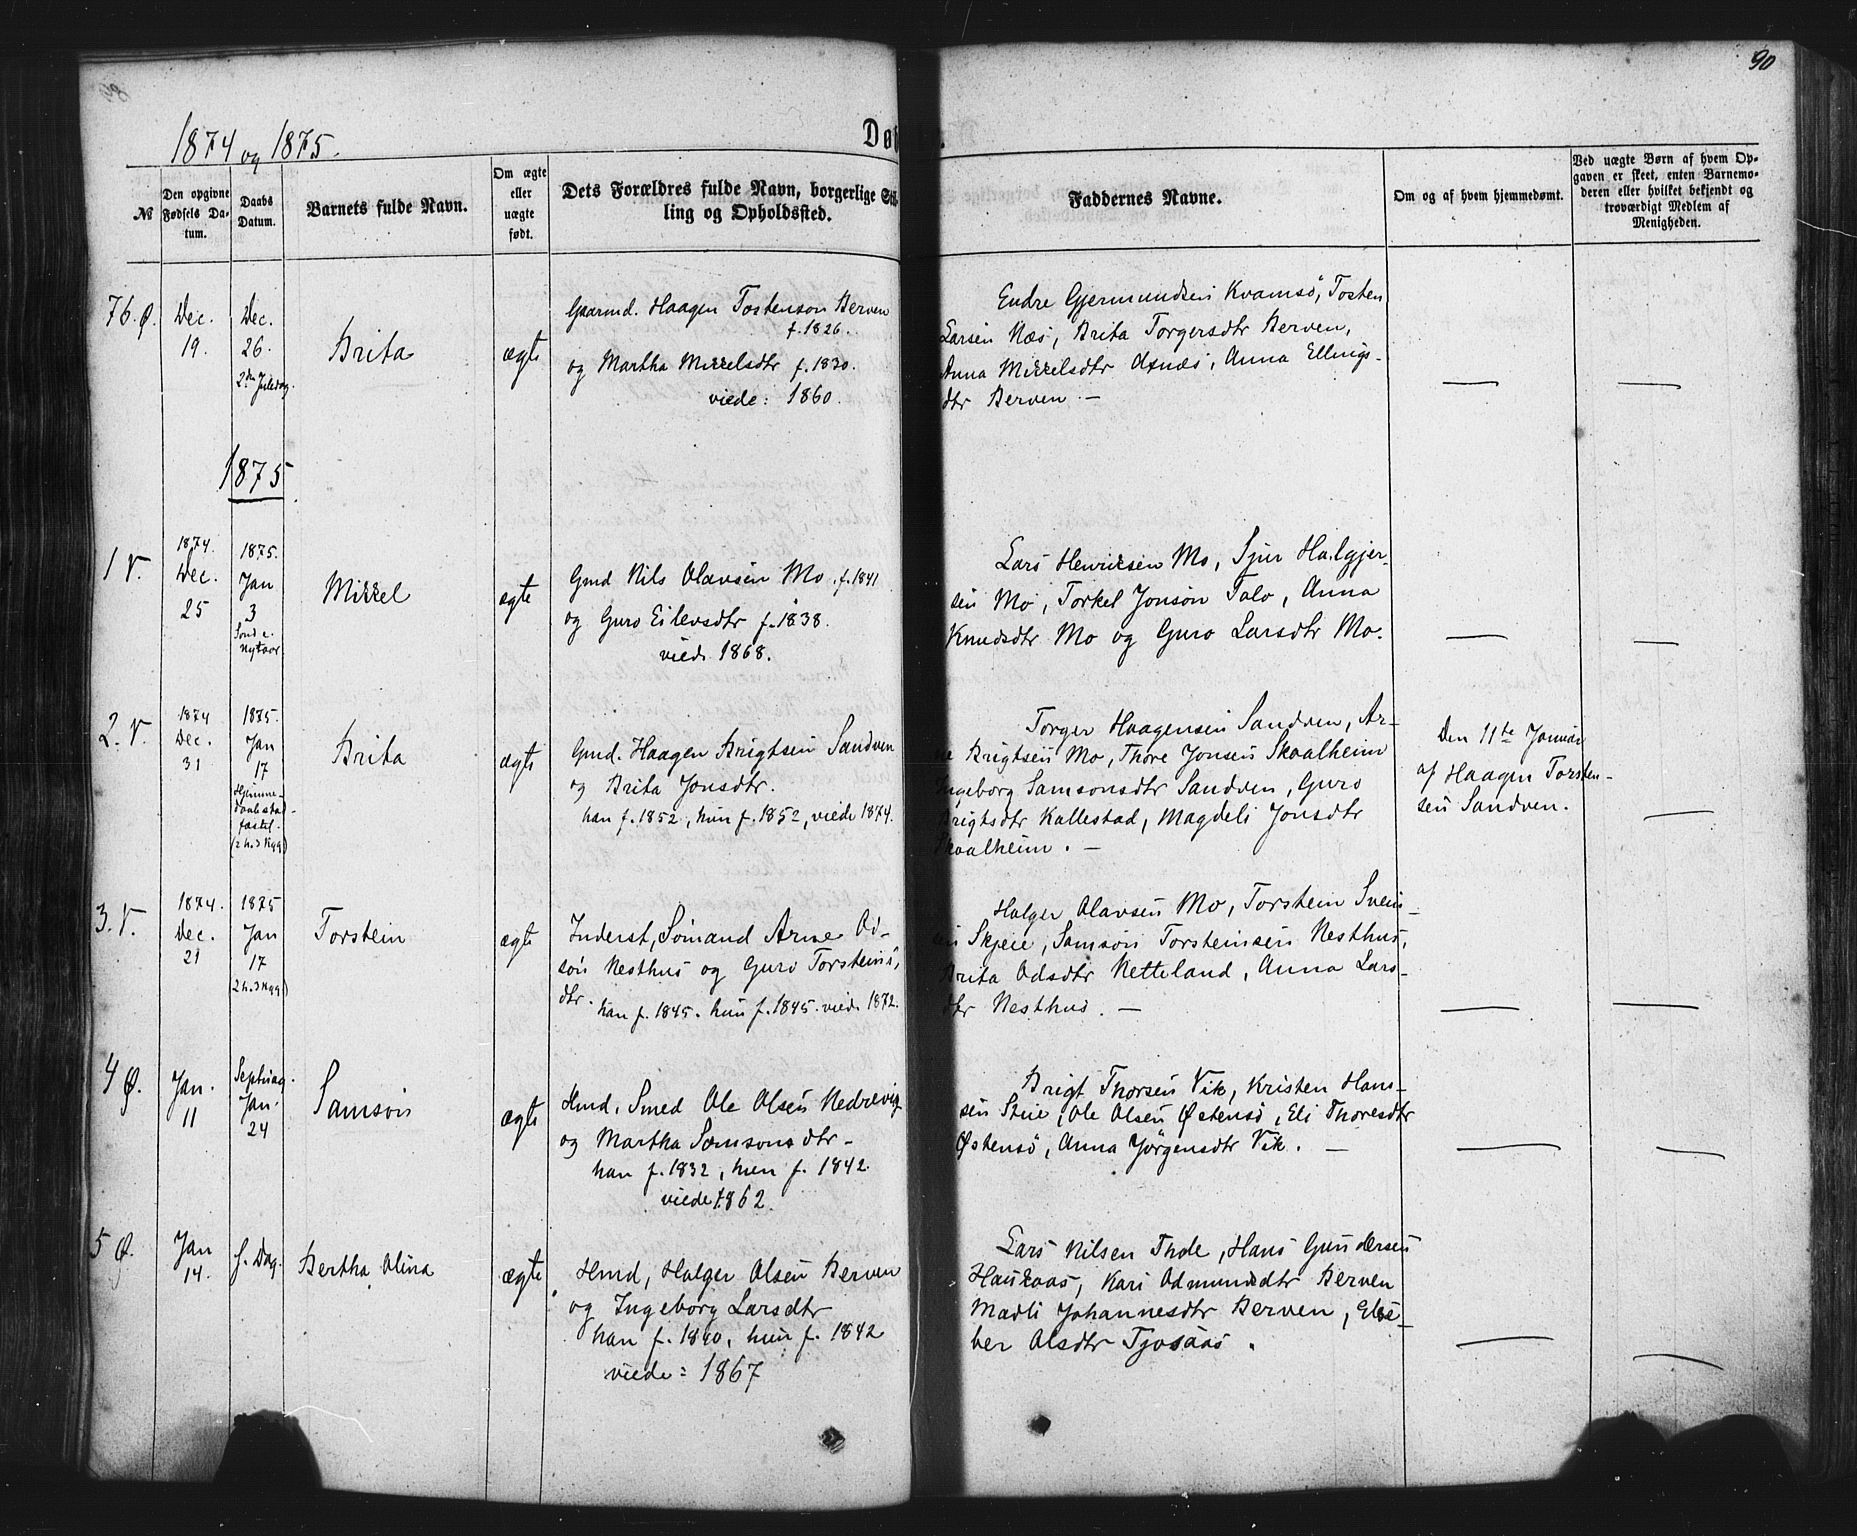 90
1874 og 1875.
Døb
№
Den opgivne Fødsels Datum.
Daabs Datum.
Barnets fulde Navn.
Om ægte eller uægte født.
Dets Forældres fulde Navn, borgerlige Stilling og Opholdssted.
Faddernes Navne.
Om og af hvem hjemmedømt.
Ved uægte Børn af hvem Opgaven er skeet, enten Barnemoderen eller hvilket bekjendt og troværdigt Medlem af Menigheden.
76. Ø.
Dec.
19.
Dec.
26.
2den Juledag.
Brita
ægte
Gaarmd. Haagen Tostenson Berven
f. 1826.
og Martha Mikkelsdtr f. 1830.
viede: 1860.
Endre Gjermundsen Kvamsö, Tosten
Larsen Næs, Brita Torgersdtr Berven,
Anna Mikkelsdtr Axnes, Anna Ellings-
dtr Berven. —
1875
1 V.
1874.
Dec.
25
1875.
Jan
3
Sønd e.
Nytaar
Mikkel
ægte
Gmd Nils Olavsen Mo. f. 1841
og Guro Eilevsdtr f. 1838.
viede 1868.
Lars Henriksen Mo, Sjur Halgjer-
sen Mo, Torkel Jonson Tolo, Anna
Knudsdtr Mo og Guro Larsdtr Mo.
2. V.
1874
Dec.
31
1875.
Jan
17
Hjemme-
daab stad-
fæstet.
(2 h. 3 Kgg)
Brita
ægte
Gmd. Haagen Brigtsen Sandven
og Brita Jonsdtr.
han f. 1852, hun f. 1852, viede 1874.
Torger Haagensen Sandven, Ar-
ne Brigtsen Mo, Thore Jonsen Skaalheim
Ingeborg Samsonsdtr Sandven, Guro
Brigtsdtr Kallestad, Magdeli Jonsdtr
Skaalheim. —
Den 11te Januar
af Haagen Torsten-
sen Sandven.
3. V.
1874.
Dec.
21
1875
Jan
17
(2 h. 3 Kgg)
Torstein
ægte
Inderst, Sömand Arne Od-
son Nesthus og Guro Torsteins-
dtr. han f. 1845. hun f. 1845. viede 1872.
Holger Olavsen Mo, Torstein Svens-
en Skjeie, Samson Torsteinsen Nesthus,
Brita Odsdtr Ketteland, Anna Lars-
dtr Nesthus. —
4 Ø.
Jan.
11
Septuag.
Jan.
24
Samson
ægte
Hmd, Smed Ole Olsen Nedrevig
og Martha Samsonsdtr-
han f. 1832, hun f. 1842.
viede 1862.
Brigt Thorsen Vik, Kristen Hans-
sen Stue, Ole Olsen Østensö, Eli Thoresdtr
Østensö, Anna Jörgensdtr Vik. —
5 Ø.
Jan
14.
s. Dag.
Bertha Olina
ægte
Hmd, Holger Olsen Berven
og Ingeborg Larsdtr
han f. 1840, hun f. 1842
viede: 1867
Lars Nilsen Thoe, Hans Gundersen
Haukaas, Kari Odmundsdtr Berven
Madli Johannesdtr Berven, Else-
ber Olsdtr Tjosaas.